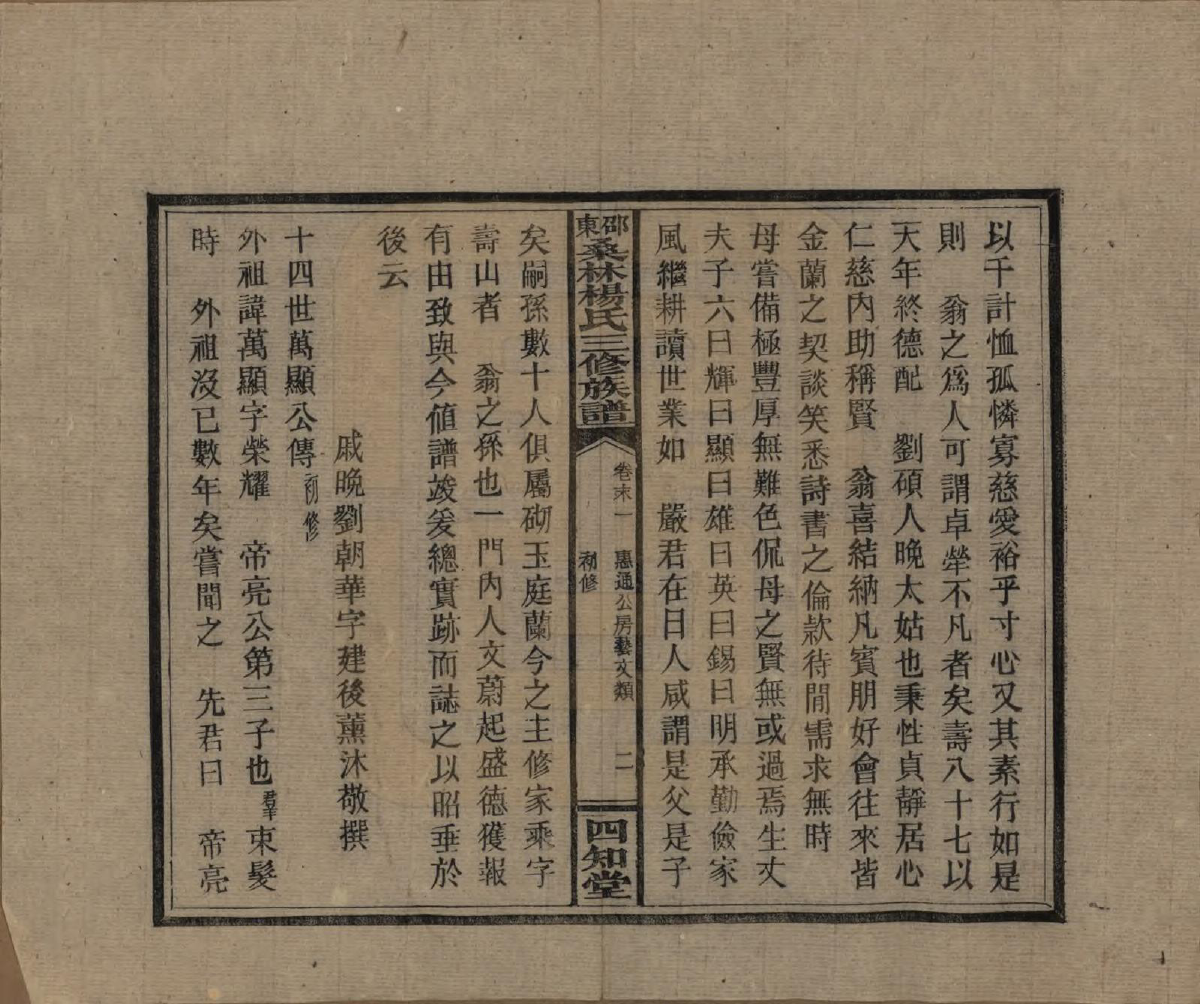 以千計恤孤憐寡慈愛裕乎寸心又其素行如是
則 翁之爲人可謂卓犖不凡者矣壽八十七以
天年終德配 劉碩人晚太姑也秉性貞靜居心
仁慈內助稱賢 翁喜結納凡賓朋好會往來皆
金蘭之契談笑悉詩書之倫款待間需求無時
母嘗備極豐厚無難色侃母之賢無或過焉生丈
夫子六曰輝曰顯曰雄曰英曰錫曰明承勤儉家
風繼耕讀世業如 嚴君在日人咸謂是父是子
邵東桑林楊氏三修族譜
卷末一 惠通公房藝文類 二
初修
四知堂
矣嗣孫數十人俱屬砌玉庭蘭今之主修家乘字
壽山者 翁之孫也一門內人文蔚起盛德獲報
有由致與今値譜竣爰總實跡而誌之以昭垂於
後云
戚晚劉朝華字建後薰沐敬撰
十四世萬顯公傳初修
外祖諱萬顯字榮耀 帝亮公第三子也羣束髮
時 外祖沒已數年矣嘗聞之 先君曰 帝亮